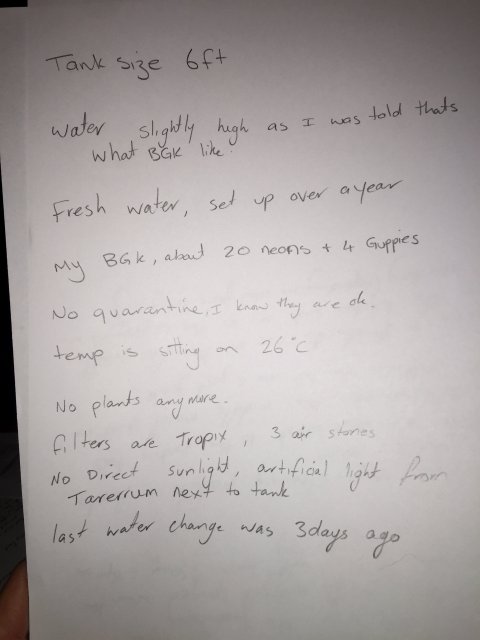 Tank size 6ft
Water slightly high as I was told thats
what BGK like.
Fresh water, set up over a year
My BGK, about 20 neons + 4 Guppies
No quarantine, I know they are ok.
temp is sitting on 26°C
No plants anymore.
filters are Tropix, 3 air stones
No Direct sunlight, artificial light from
Tarerrum next to tank
last water change was 3days ago